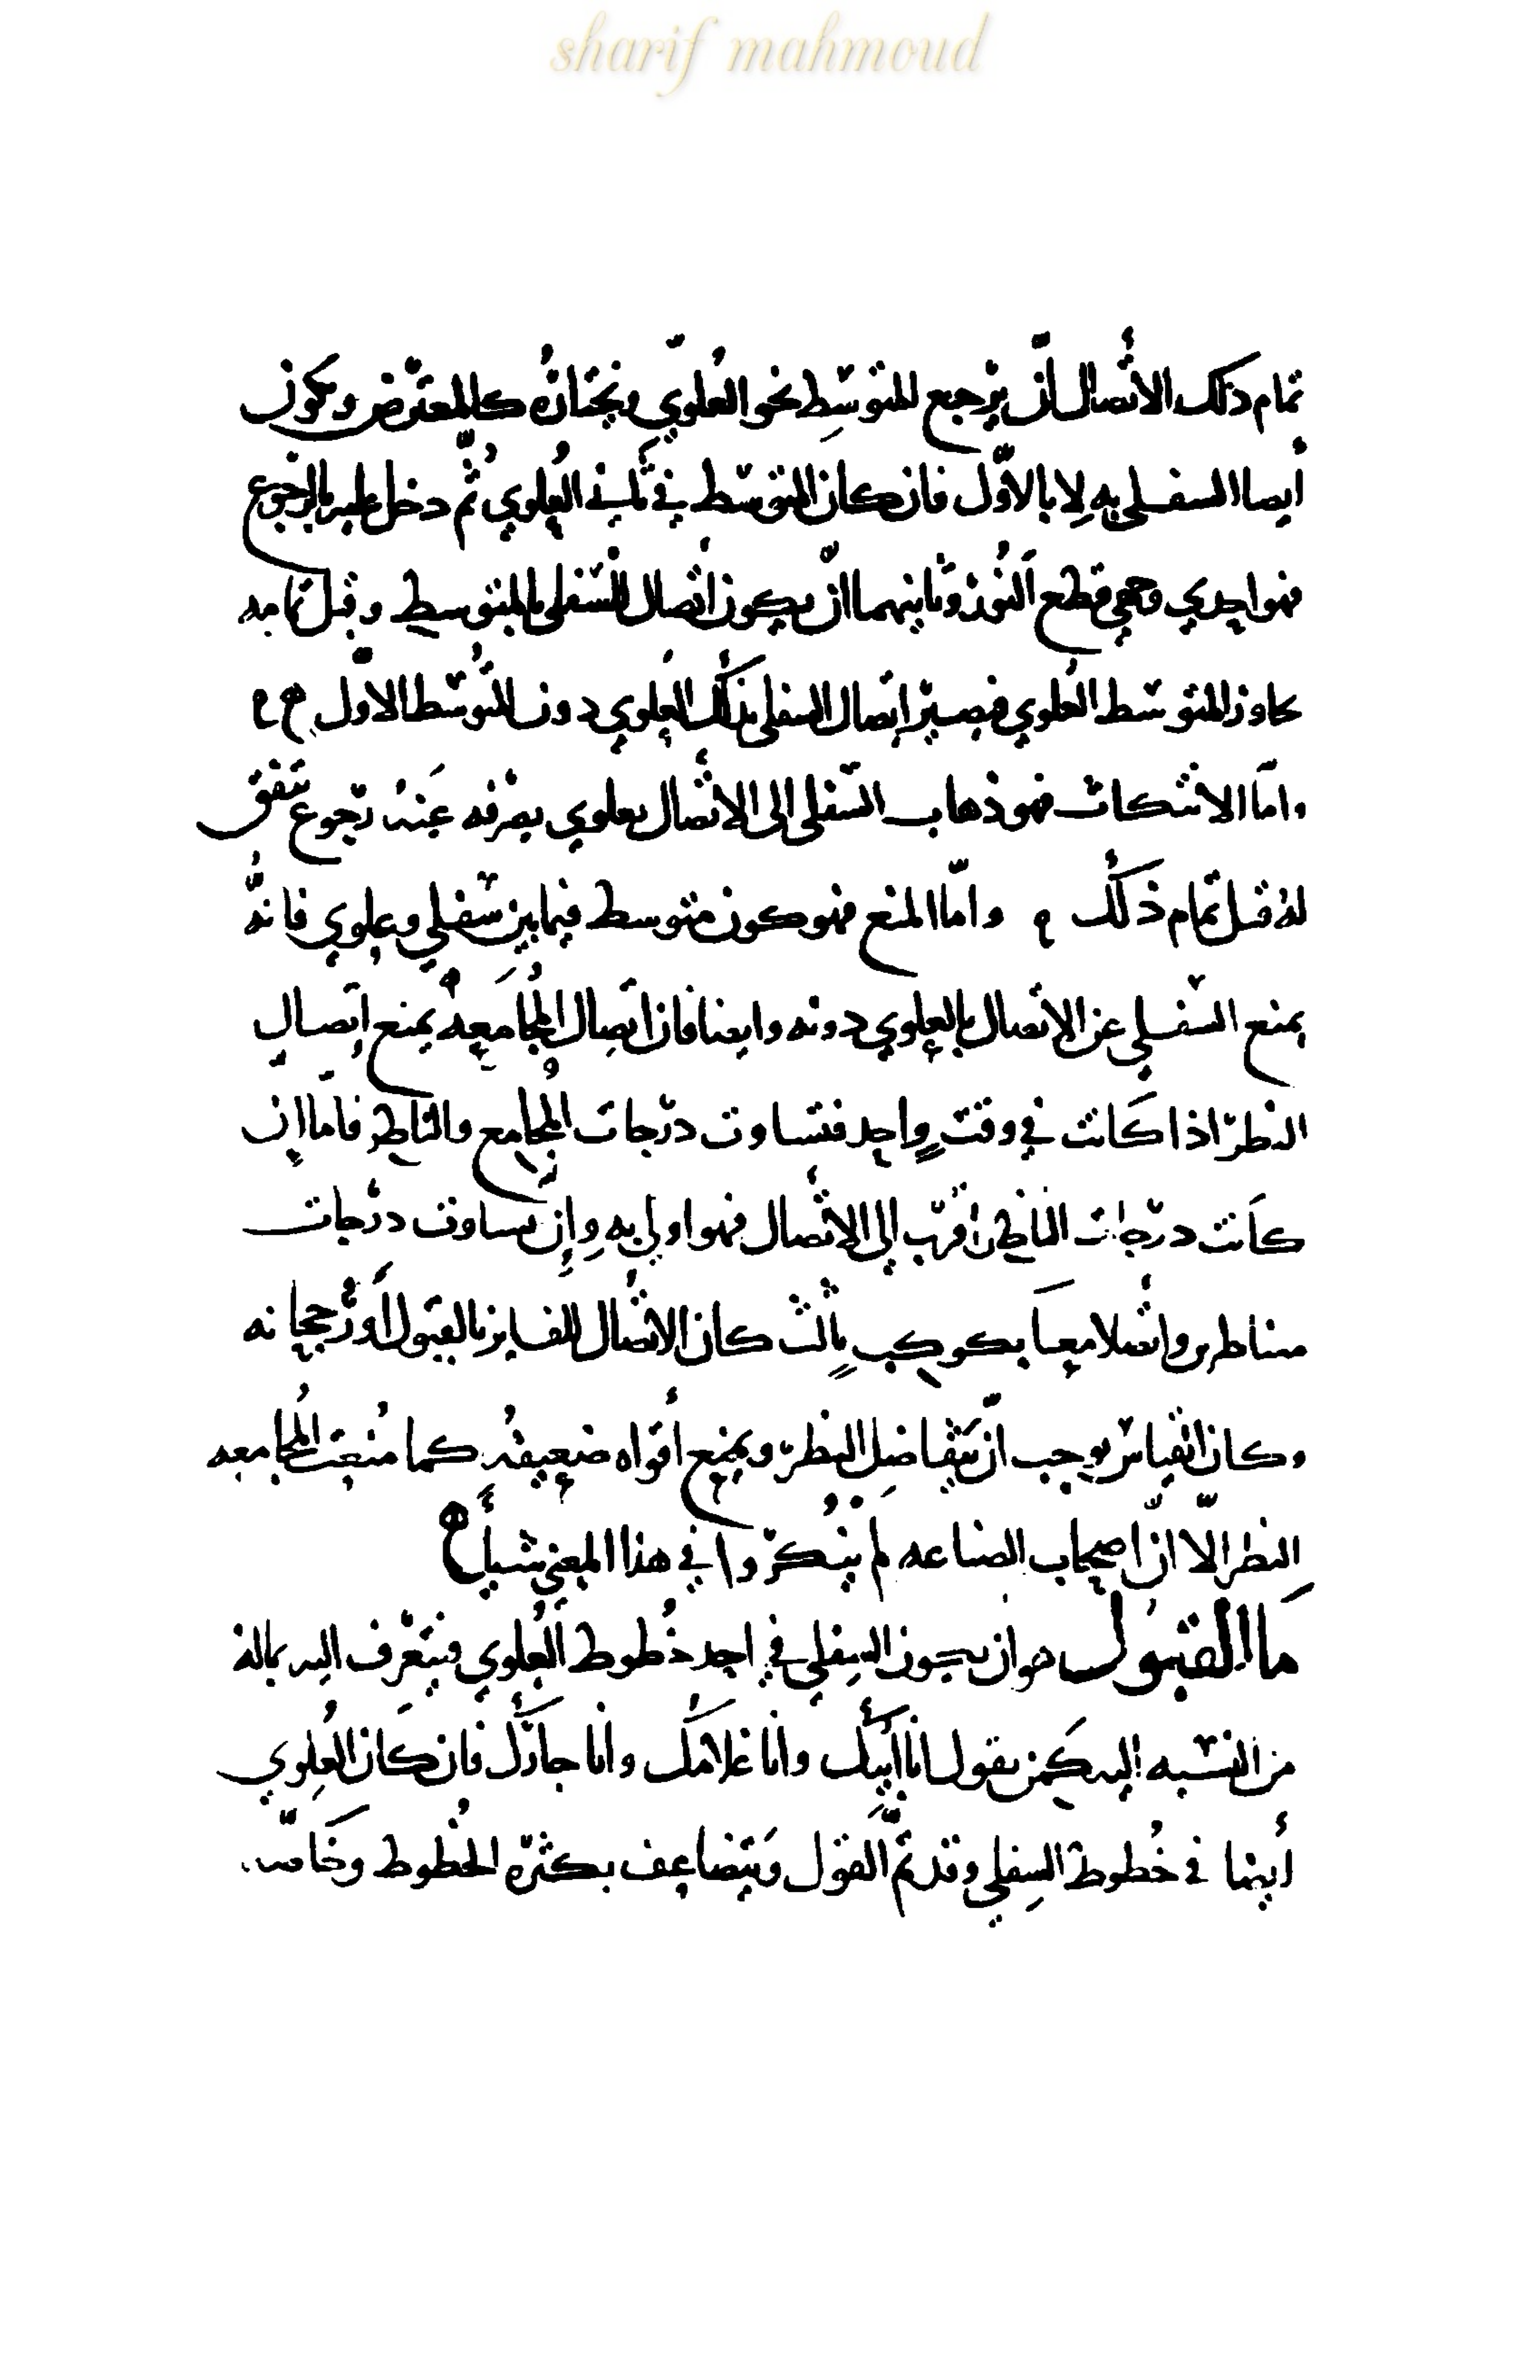 sharif mahmoud
تمام ذلك الاتصال ان يرجع المتوسط نحو العلوي ويجتازه كالمعترض ويكون
أيضا السفلي به لا بالاول فان كان المتوسط في ثاني العلوي ثم دخل عليه بالرجوع
فهو احدي وجهي قطع النور وثانيهما ان يكون اتصال السفلي بالمتوسط وقبل تمامه
يجاوز المتوسط العلوي فيصير اتصال السفلي بذلك العلوي دون المتوسط الاول
واما الانتكاث فهو ذهاب السفلي الى الاتصال بعلوي يصرفه عنه رجوع يتفق
له قبل تمام ذلك ه واما المنع فهو كون متوسط فيما بين سفلي وعلوي فانه
يمنع السفلي عن الاتصال بالعلوي دونه وايضا فان اتصال المجامعه يمنع اتصال
النظر اذا كانت في وقت واحد فتساوت درجات المجامع والناظر فاما ان
كانت درجات الناظر اقرب الى الاتصال فهو اولى به وان تساوت درجات
متناظرين واتصلا معا بكوكب ثالث كان الاتصال للفايز بالقبول أو رجحانه
وكان القياس يوجب ان يتفاضل النظر ويمنع أقواه ضعيفه كما منعت المجامعه
النظر الا ان اصحاب الصناعه لم ينكروا في هذا المعنى شيأ
ما القبول هو ان يكون السفلي في احد خطوط العلوي فيتعرف اليه بماله
من النسبه اليه كمن يقول انا ابنك وانا غلامك وانا جارك فان كان العلوي
أيضا في خطوط السفلي وقد تم القول ويتضاعف بكثرة الخطوط وخاصه